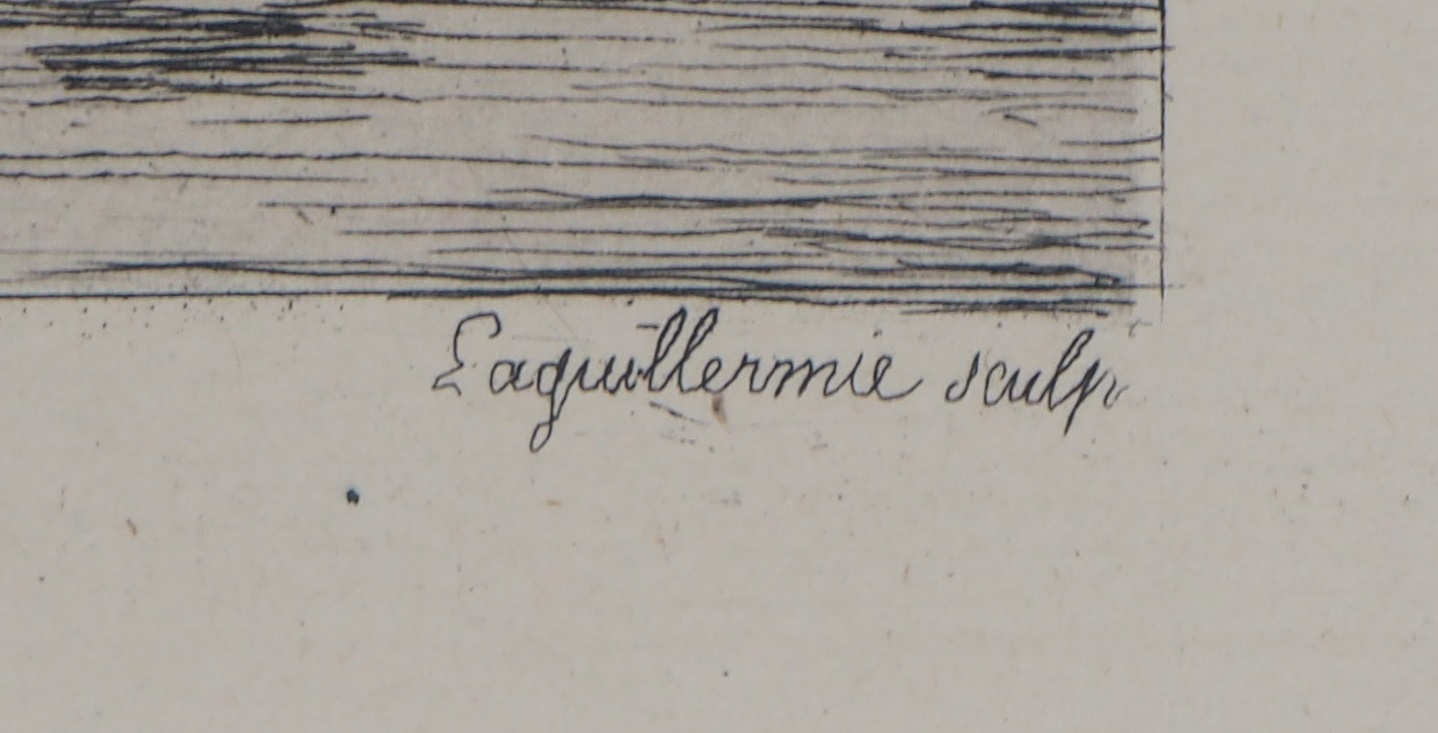 Laguillermie sculp